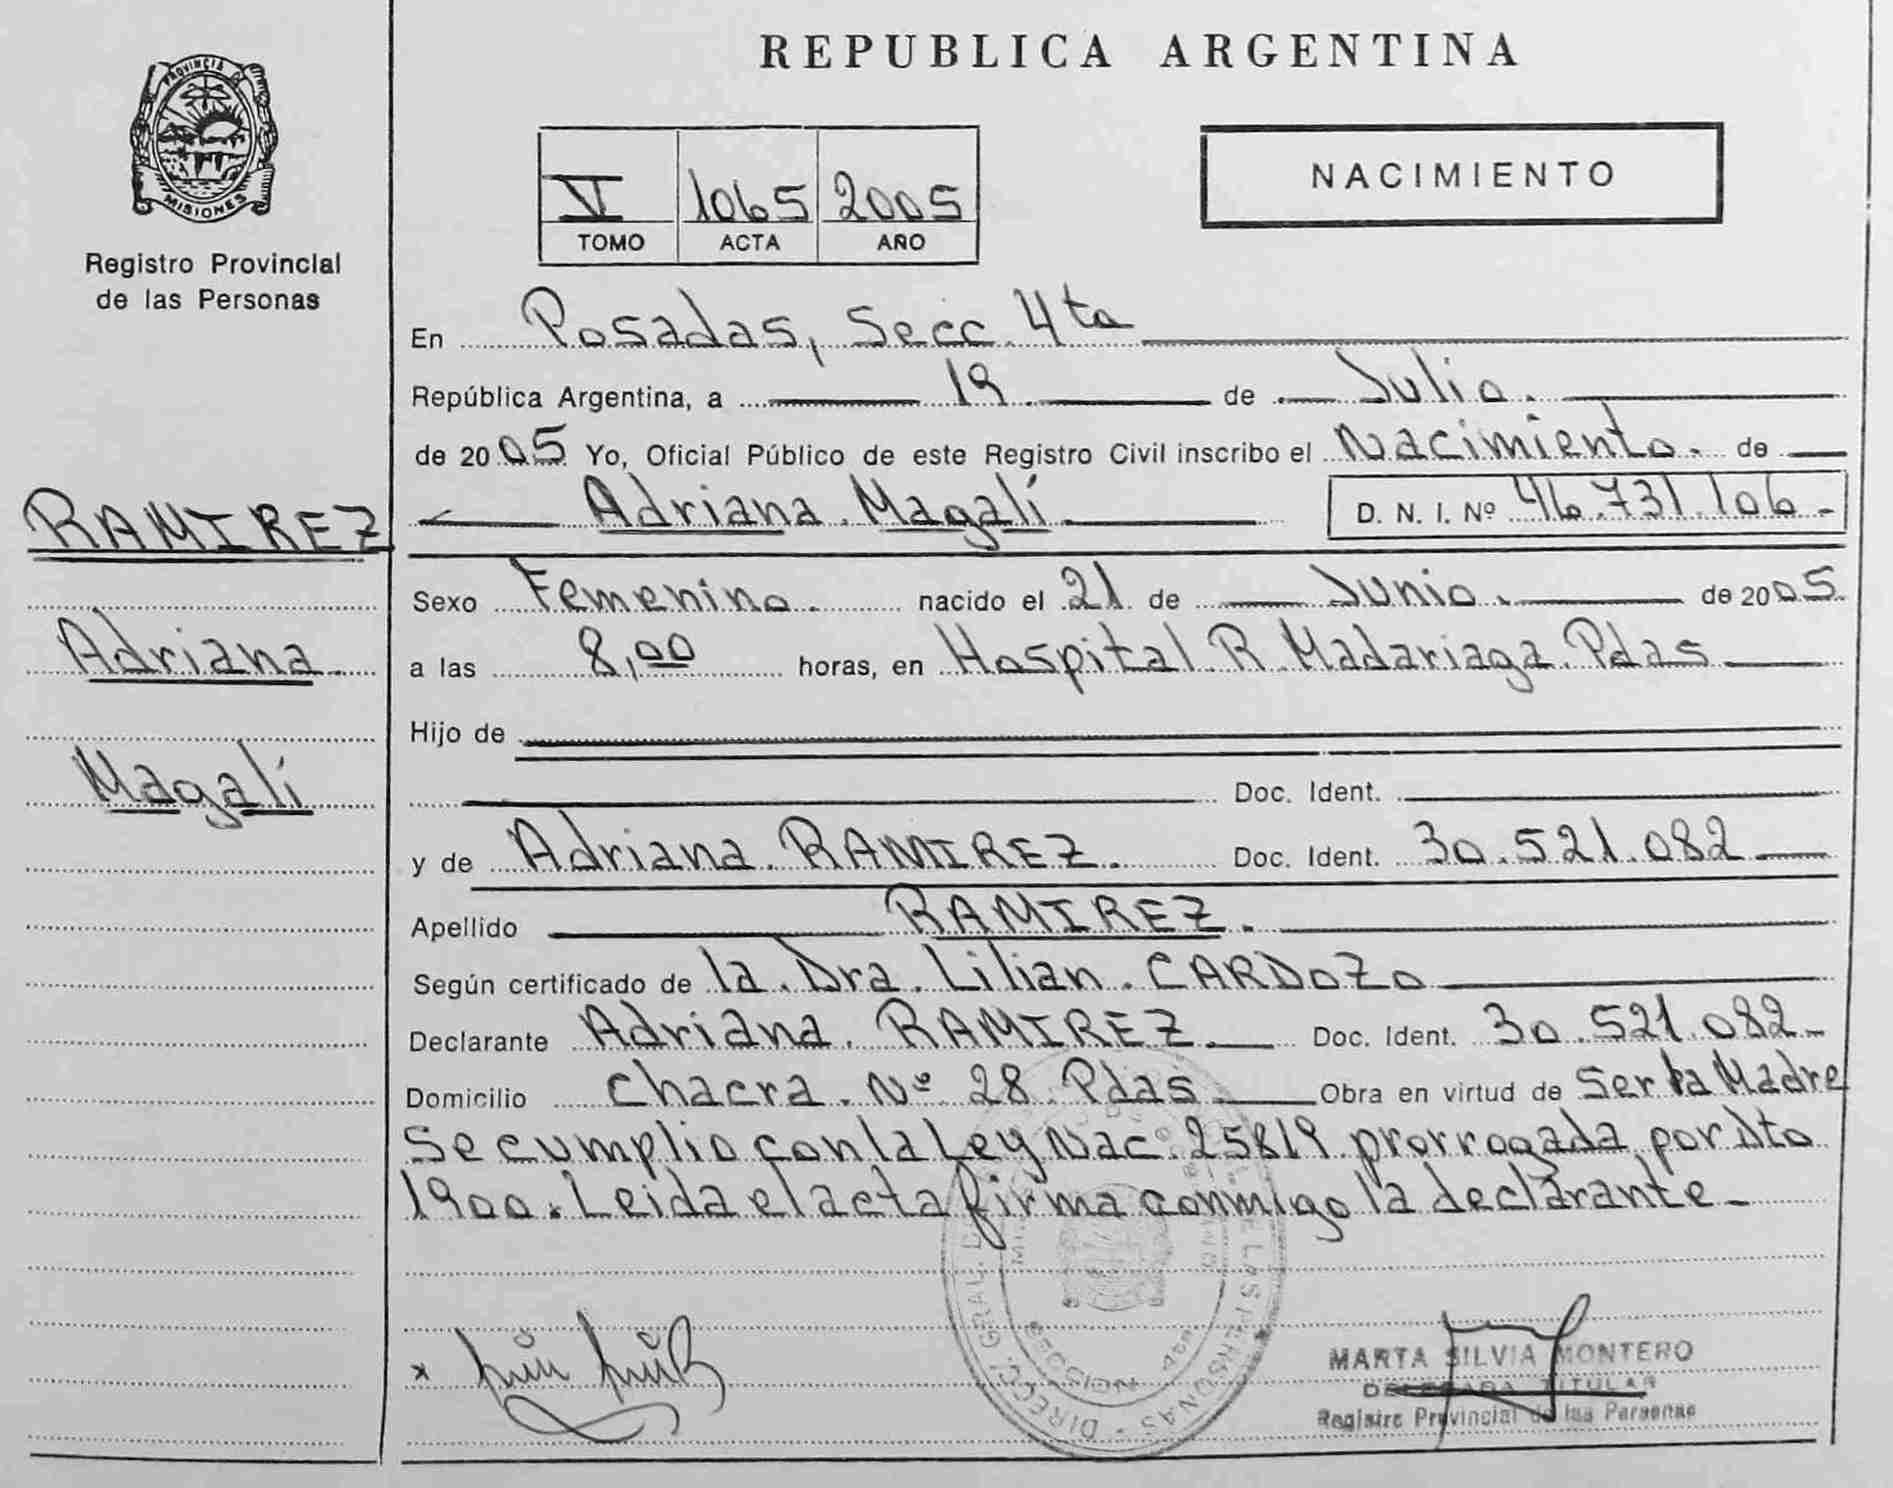 REPUBLICA ARGENTINA
PROVINCIA D
MISIONES
Registro Provincial
de las Personas
V 1065 2005
TOMO ACTA AÑO
NACIMIENTO
En Posadas, Secc. 4ta
República Argentina, a 19 de Julio.
de 2005 Yo, Oficial Público de este Registro Civil inscribo el Nacimiento. de
Adriana Magalí D. N. I. Nº 46.731.106.-
RAMIREZ
Adriana
Magalí
Sexo Femenino. nacido el 21 de Junio. de 2005
a las 8,00 horas, en Hospital R. Madariaga Pdas
Hijo de
Doc. Ident.
y de Adriana RAMIREZ. Doc. Ident. 30.521.082
Apellido RAMIREZ.
Según certificado de la Dra. Lilian. CARDOZO
Declarante Adriana. RAMIREZ. Doc. Ident. 30.521.082-
Domicilio Chacra. Nº 28 Pdas Obra en virtud de Ser la Madre
Se cumplio con la Ley Nac. 25819 prorrogada por Dto
1900. Leida el acta firma conmigo la declarante-
x
MARTA SILVIA MONTERO
DELEGADA TITULAR
Registro Provincial de las Personas